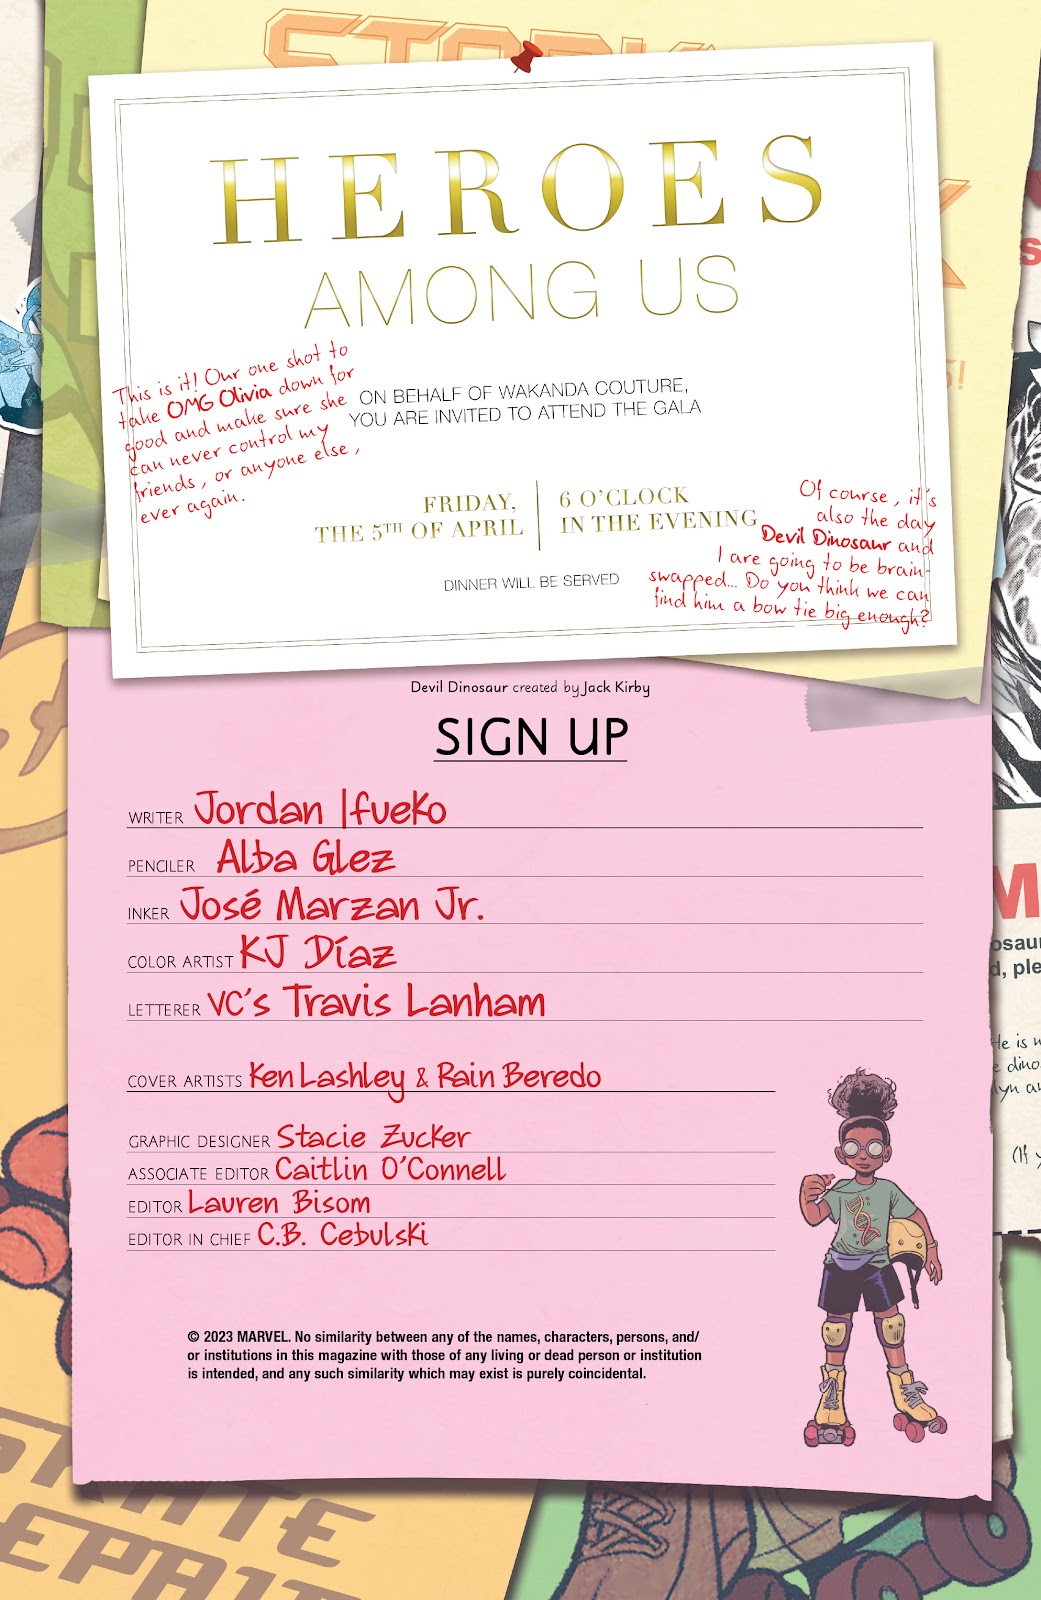 HEROES
AMONG US
This is it! Our one shot to
take OMG Olivia down for
good and make sure she
can never control my
friends, or anyone else,
ever again.
ON BEHALF OF WAKANDA COUTURE,
YOU ARE INVITED TO ATTEND THE GALA
FRIDAY,
THE 5TH OF APRIL
6 O'CLOCK
IN THE EVENING
Of course, it's
also the day
Devil Dinosaur and
I are going to be brain-
swapped... Do you think we can
find him a bow tie big enough?
DINNER WILL BE SERVED
Devil Dinosaur created by Jack Kirby
SIGN UP
WRITER Jordan Ifueko
PENCILER Alba Glez
INKER José Marzan Jr.
COLOR ARTIST KJ Díaz
LETTERER VC's Travis Lanham
COVER ARTISTS Ken Lashley & Rain Beredo
GRAPHIC DESIGNER Stacie Zucker
ASSOCIATE EDITOR Caitlin O'Connell
EDITOR Lauren Bisom
EDITOR IN CHIEF C.B. Cebulski
© 2023 MARVEL. No similarity between any of the names, characters, persons, and/
or institutions in this magazine with those of any living or dead person or institution
is intended, and any such similarity which may exist is purely coincidental.